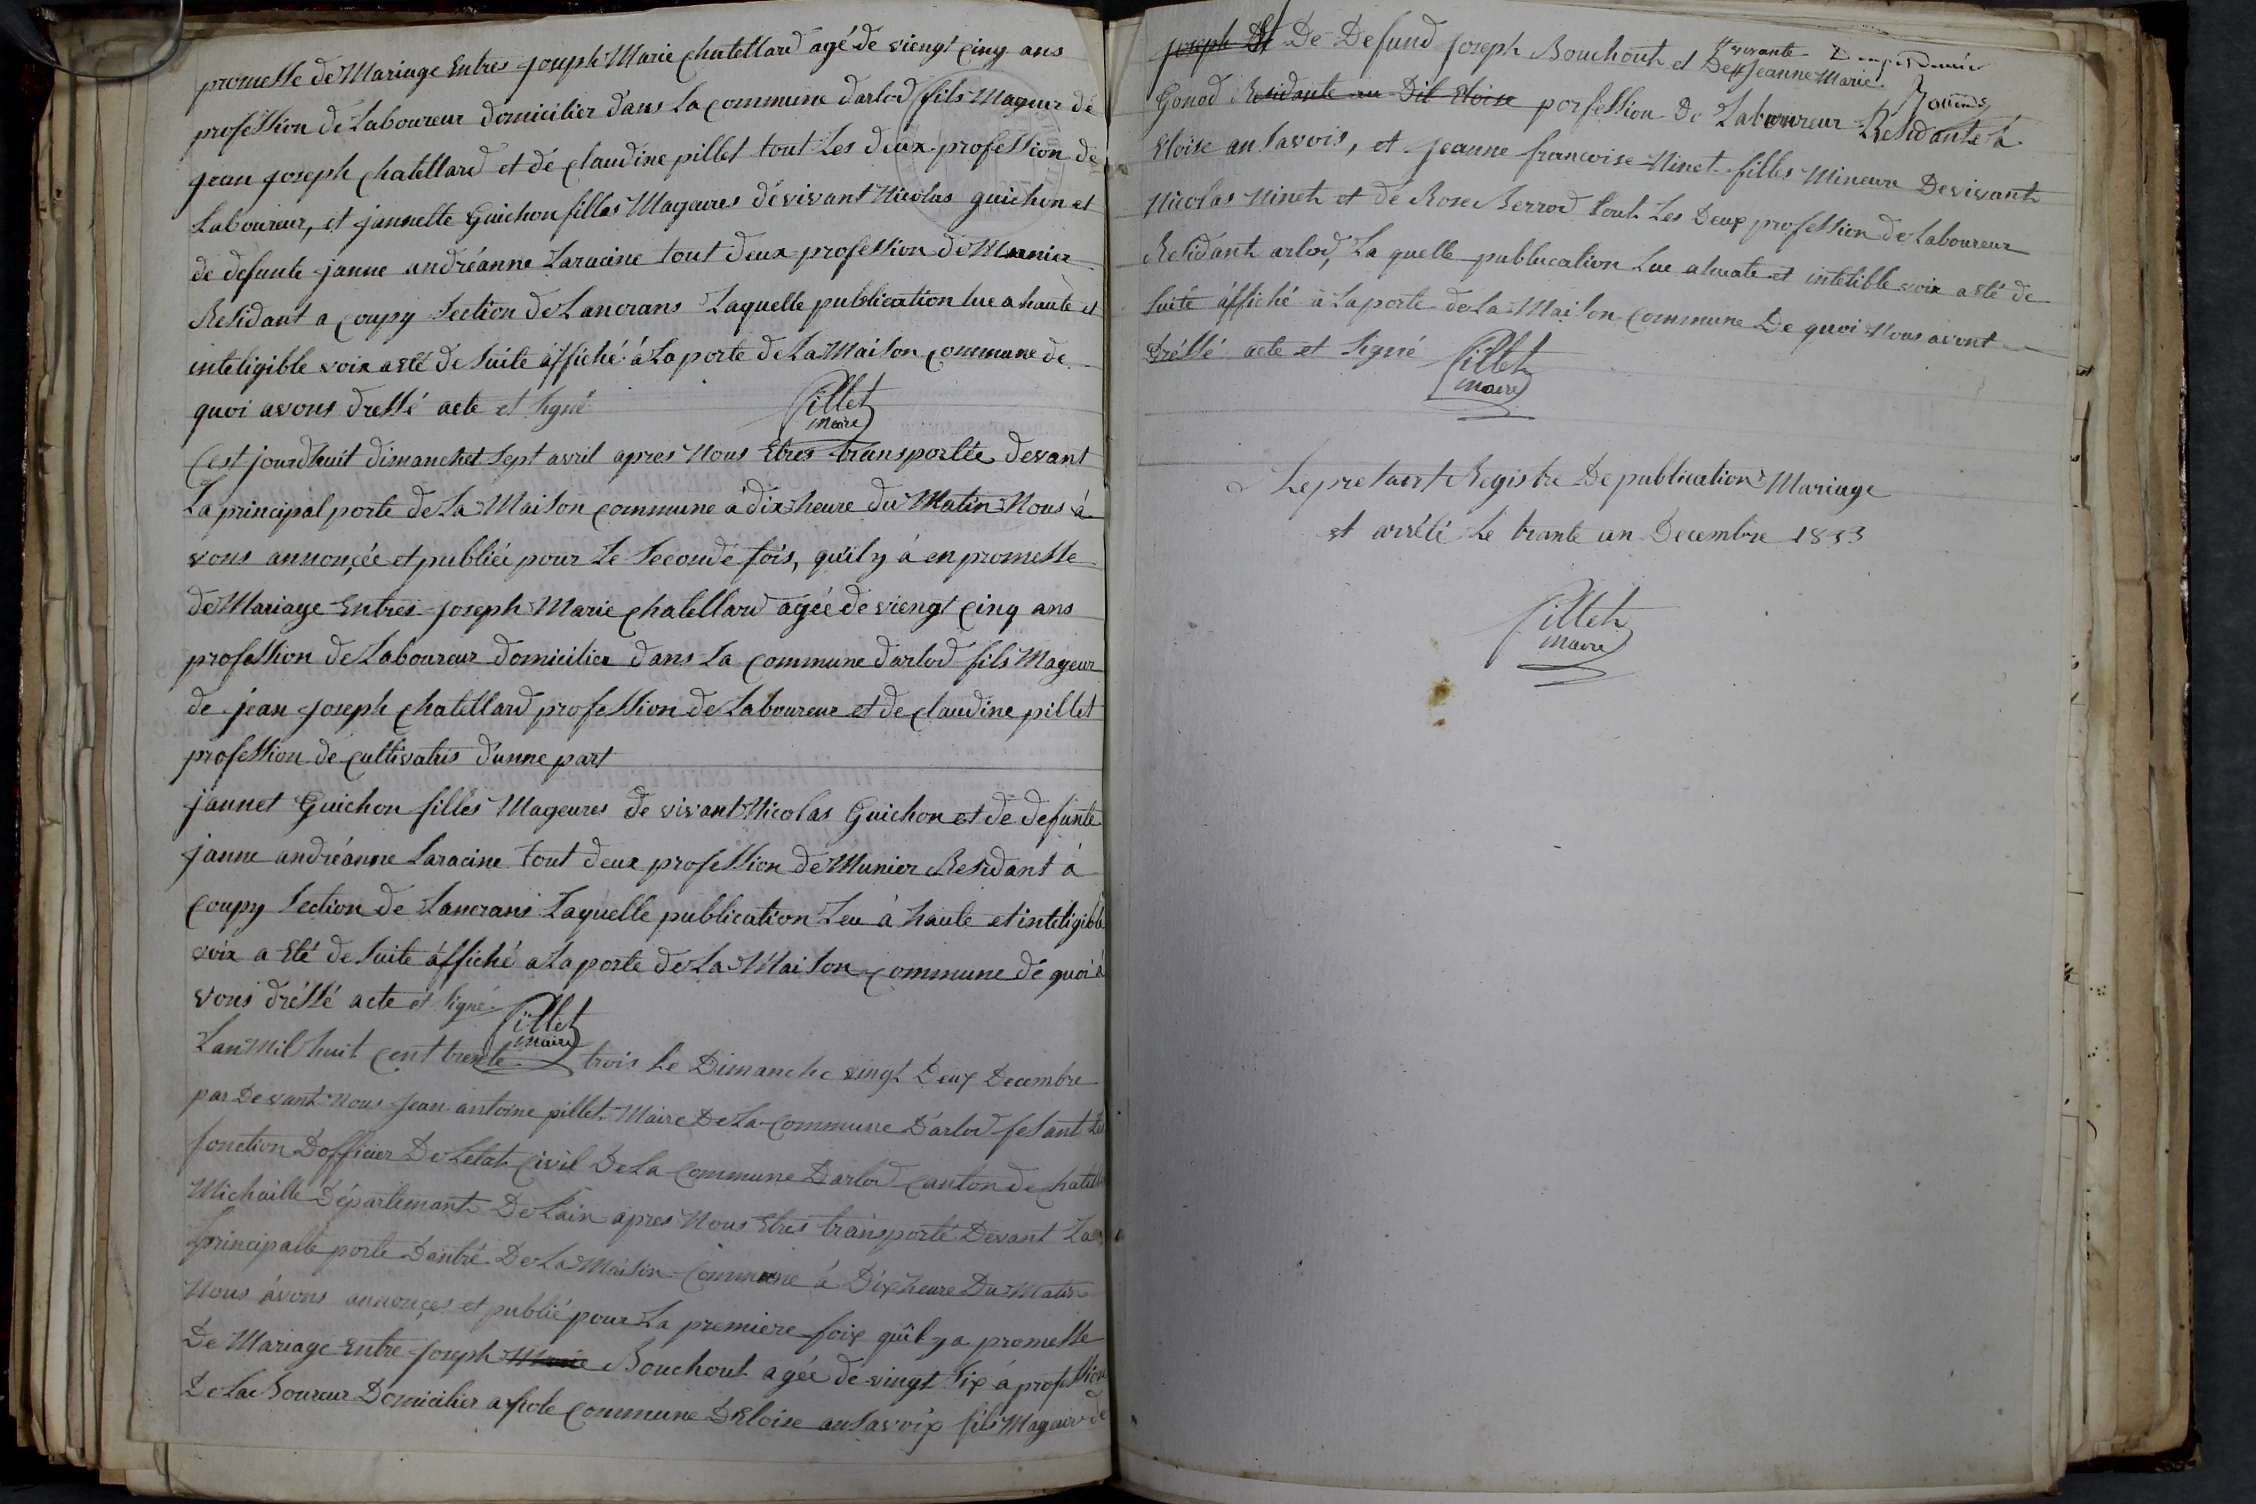 promesse de Mariage Entres joseph Marie chatellard agé de viengt cinq ans
profession de Laboureur domicilier dans La commune darlod fils Mageur de
jean joseph chatellard et dé claudine pillet tout Les deux profession de
Laboureur, et jannette Guichon filles Mageures dévivant Nicolas guichon et
de defunte janne andréanne Laracine tout deux profession de Munier
Residant a coupy section de Lancrans Laquelle publication lue a haute et
inteligible voix a été de suite affiché á La porte de La Maison commune de
quoi avons dressé acte et signé
Pillet
maire
Cest jourdhuit dimanchet sept avril apres Nous Etres transportée devant
La principal porte de La Maison commune á dix heure du Matin Nous á
vons annonçée et publiée pour Le seconde fois, qu'il y á en promesse
de Mariage Entres joseph Marie chatellard agée de viengt cinq ans
profession de Laboureur domicilier dans La commune darlod fils Mageur
de jean joseph chatellard profession de Laboureur et de claudine pillet
profession de cultivatris d'unne part
jannet Guichon filles Mageures de vivant Nicolas Guichon et de defunte
janne andréanne Laracine tout deux profession de Munier Residant á
coupy section de Lancrans Laquelle publication Leu á haute et inteligible
voix a Eté de suite áffiché a La porte de La Maison commune dé quoi á
vons dréssé acte et signé
Pillet
maire
Lan Mil huit cent trente trois Le Dimanche vingt Deux Decembre
par Devant Nous jean antoine pillet Maire De La commune D'arlod fesant Les
fonction Dofficier De Letat Civil De La commune Darlod canton de chatillon
Michaille Départemant De Lain apres Nous Etres transporté Devant La
principalle porte Dantré De La Maison Commune á Dix heure Du Matin
Nous ávons annonçes et publié pour La premiere foix quil y a promesse
De Mariage Entre joseph Marie Bouchout agée dé vingt six á profession
De Laboureur Domicilier a commune DEloise au Savoix fils Mageur de
joseph De Defund joseph Bouchout et De Jeanne Marie
vivante
Gonod Residante au Dit Eloise porfession De Laboureur Residante á
Eloise au Savois, et jeanne francoise Ninet filles Mineure De vivant
Nicolas Ninet et dé Rose Berrod tout Les Deux profession de Laboureur
Residant arlod, La quelle publucation Lue ahuate et intelible voix a été de
suite áffiché á La porte de La Maison commune De quoi Nous avont
dréssé acte et signé
Pillet
maire
Le presant Registre De publication Mariage
et arrété Le trante un Decembre 1833
Pillet
maire